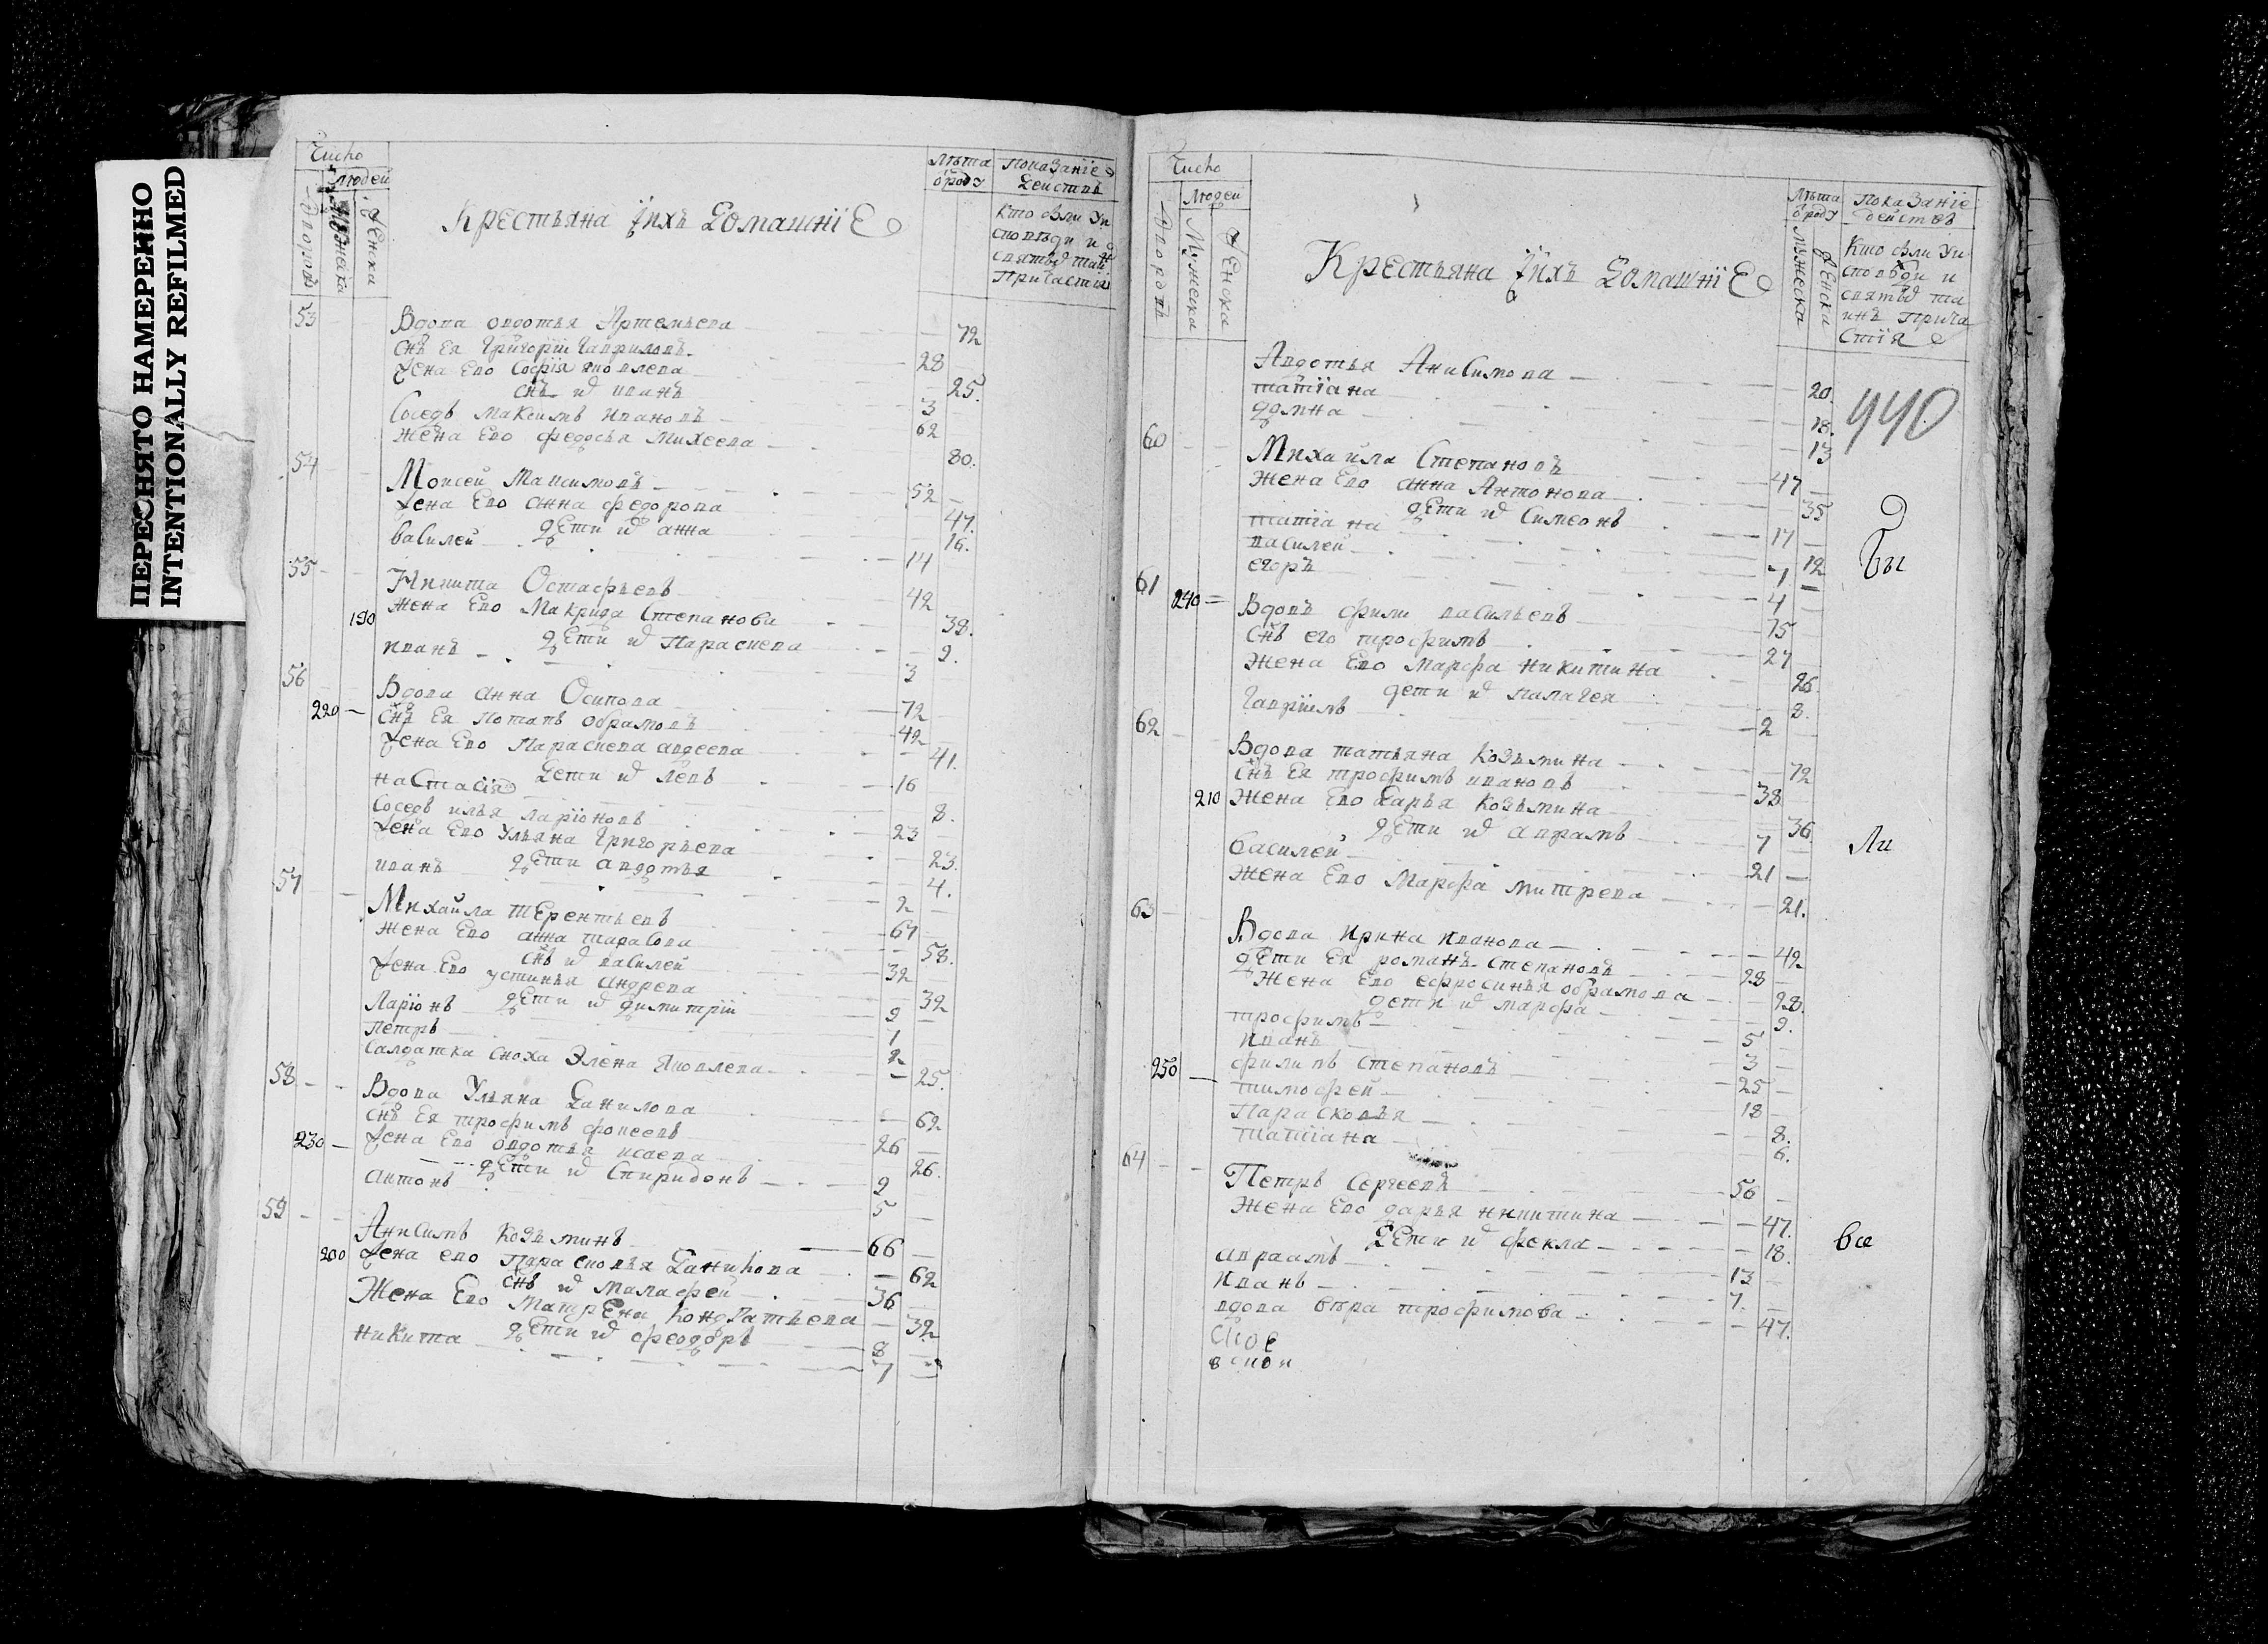 ПЕРЕСНЯТО НАМЕРЕННО
INTENTIONALLY REFILMED
Число
Людей
Дворовъ
Мужеска
Женска
Крестьяна Їихъ Домашнїе
Лѣта
о роду
показанїе
Действъ
Кто были Уи
сповѣди и
святыхъ таи
Причастия
53
Вдова овдотья Артемьева 72
Снъ Ея Григорїи Гавриловъ 28
Жена Ево Софїя яковлева 25.
снъ ихъ иванъ 3
Соседъ максимъ Ивановъ 62
Жена Ево федосья михеева 80.
54 Моисей Максимовъ 52
Жена Ево анна федорова 47.
дети ихъ анна 16.
василей 14
55 Никита Остафьевъ 42
190 Жена Ево Макрида Степанова 38.
дети ихъ Параскева 9.
иванъ 3
56 Вдова анна Осипова 72
220 Снъ Ея потапъ обрамовъ 42
Жена Ево Параскева авдеева 41.
Дети ихъ левъ 16
настасїя 8.
Соседъ илья ларїоновъ 23
Жена Ево Ульяна Григорьева 23.
дети авдотья 4.
иванъ 2
57 Михайла терентьевъ 67
Жена Ево анна тарасова 58.
снъ ихъ василей 32
Жена Ево устинья андрева 32
дети ихъ димитрїи 9
Ларїонъ 7
петръ 2
салдатка сноха Элена яковлева 25.
58 Вдова Ульяна Данилова 62
Снъ Ея трофимъ фокеевъ 26
230 Жена Ево овдотья исаева 26.
дети ихъ Спиридонъ 9
антонъ 5
59 Анисимъ козьминъ 66
200 Жена ево Парасковья Данилова 62
снъ ихъ Малафей 36
Жена Ево Матрена Кондратьева 32
дети ихъ феодоръ 8
никита 7
Число
Людей
Дворовъ
Мужеска
Женска
Крестьяна Їихъ Домашнїе
Лѣта
о роду
мужеска
Женска
Показанїе
действъ
Кто были Уи
сповѣди и
святыхъ та
инъ прича
стїя
440
Авдотья Анисимова 20.
татїана 18.
домна 13
60 Михайла Степановъ 47
Жена Ево анна Антонова 35
дети ихъ Симеонъ 17
татїана 12
василей 7
егоръ 4
Бы
61 240 Вдовъ фили васильевъ 75
снъ его трофимъ 27
Жена Ево Марфа никитина 26
дети ихъ палагея 8.
гаврїилъ 2
62 Вдова татьяна козьмина 72
Снъ Ея трофимъ ивановъ 38
210 Жена Ево Дарья козьмина 36.
дети ихъ аврамъ 7
василей 21
Жена Ево Марфа митрева 21.
Ли
63 Вдова Ирина иванова 49
дети Ея романъ степановъ 28
Жена Ево ефросинья обрамова 28.
дети ихъ марфа 9.
трофимъ 5
иванъ 3
250 филипъ степановъ 25
тимофей 18
Парасковья 8.
татїана 6.
64 Петръ Сергеевъ 56
Жена Ево дарья никитина 47.
Дети ихъ фекла 18.
авраамъ 13
иванъ 7.
вдова вѣра трофимова 47.
Все